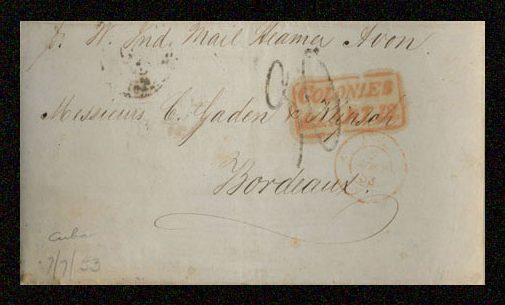 p. W. Ind. Mail Steamer Avon.
COLONIES
Messieurs C. Gaden & Klipsch
Bordeaux.
53
Cuba
7/7/53